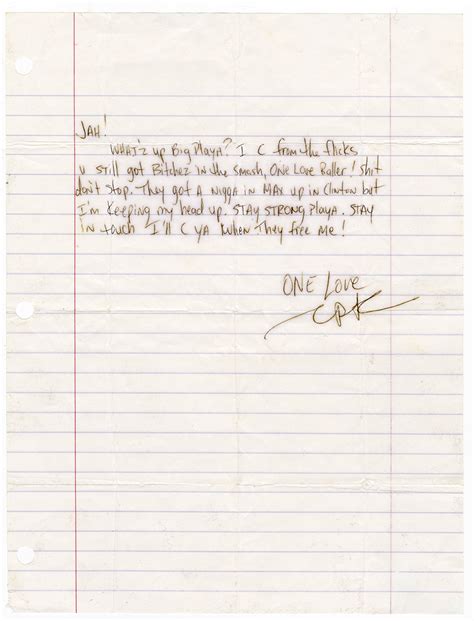 JAH!
WHAT'z up Big Playa? I C from the flicks
u still got Bitchez in the smash, One Love Baller! Shit
don't stop. They got a nigga in Max up in Clinton but
I'm Keeping my head up. STAY STRONG Playa. STAY
in touch I'll C YA When They free me!
ONE LOVE